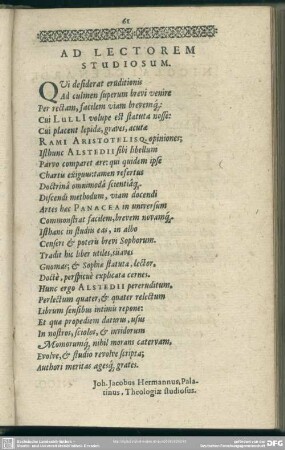 61
AD LECTOREM
STUDIOSUM.
QVi desiderat eruditionis
Ad culmen superum brevi venire
Per rectam, facilem viam brevemq́;
Cui LULLI volupe est statuta nosse:
Cui placent lepida, graves, acutæ
RAMI ARISTOTELISQ, opiniones;
Isthunc ALSTEDII sibi libellum
Parvo comparet ære: qui quidem ipse
Chartis exiguus: tamen refertus
Doctrinâ omnimodâ scientiâq́;
Discendi methodum, viam docendi
Artes hac PANACEA in universum
Commonstrat facilem, brevem novamq́;
Isthanc in studiis eas, in albo
Censeri & poteris brevi Sophorum.
Tradit hic liber utiles, suaves
Gnomas; & Sophiæ statuta, lector,
Doctè, perspicuè explicata cernes.
Hunc ergo ALSTEDII pereruditum,
Perlectum quater, & quater relectum
Librum sensibus intimis repone:
Et quæ propediem daturus, usus
In nostros, sciolos, & invidorum
Momorumq́, nihil morans catervam,
Evolve, & studio revolve scripta;
Authori meritas agesq́, grates.
Joh. Jacobus Hermannus, Pala-
tinus, Theologiæ studiosus.